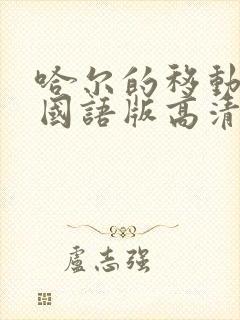 哈尔的移動
國語版高清
盧志强